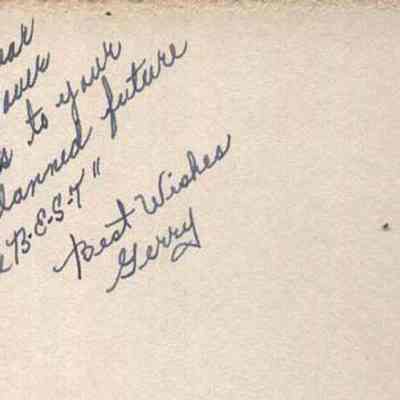 to your
planned future
B-E-S-T"
Best Wishes
Gerry